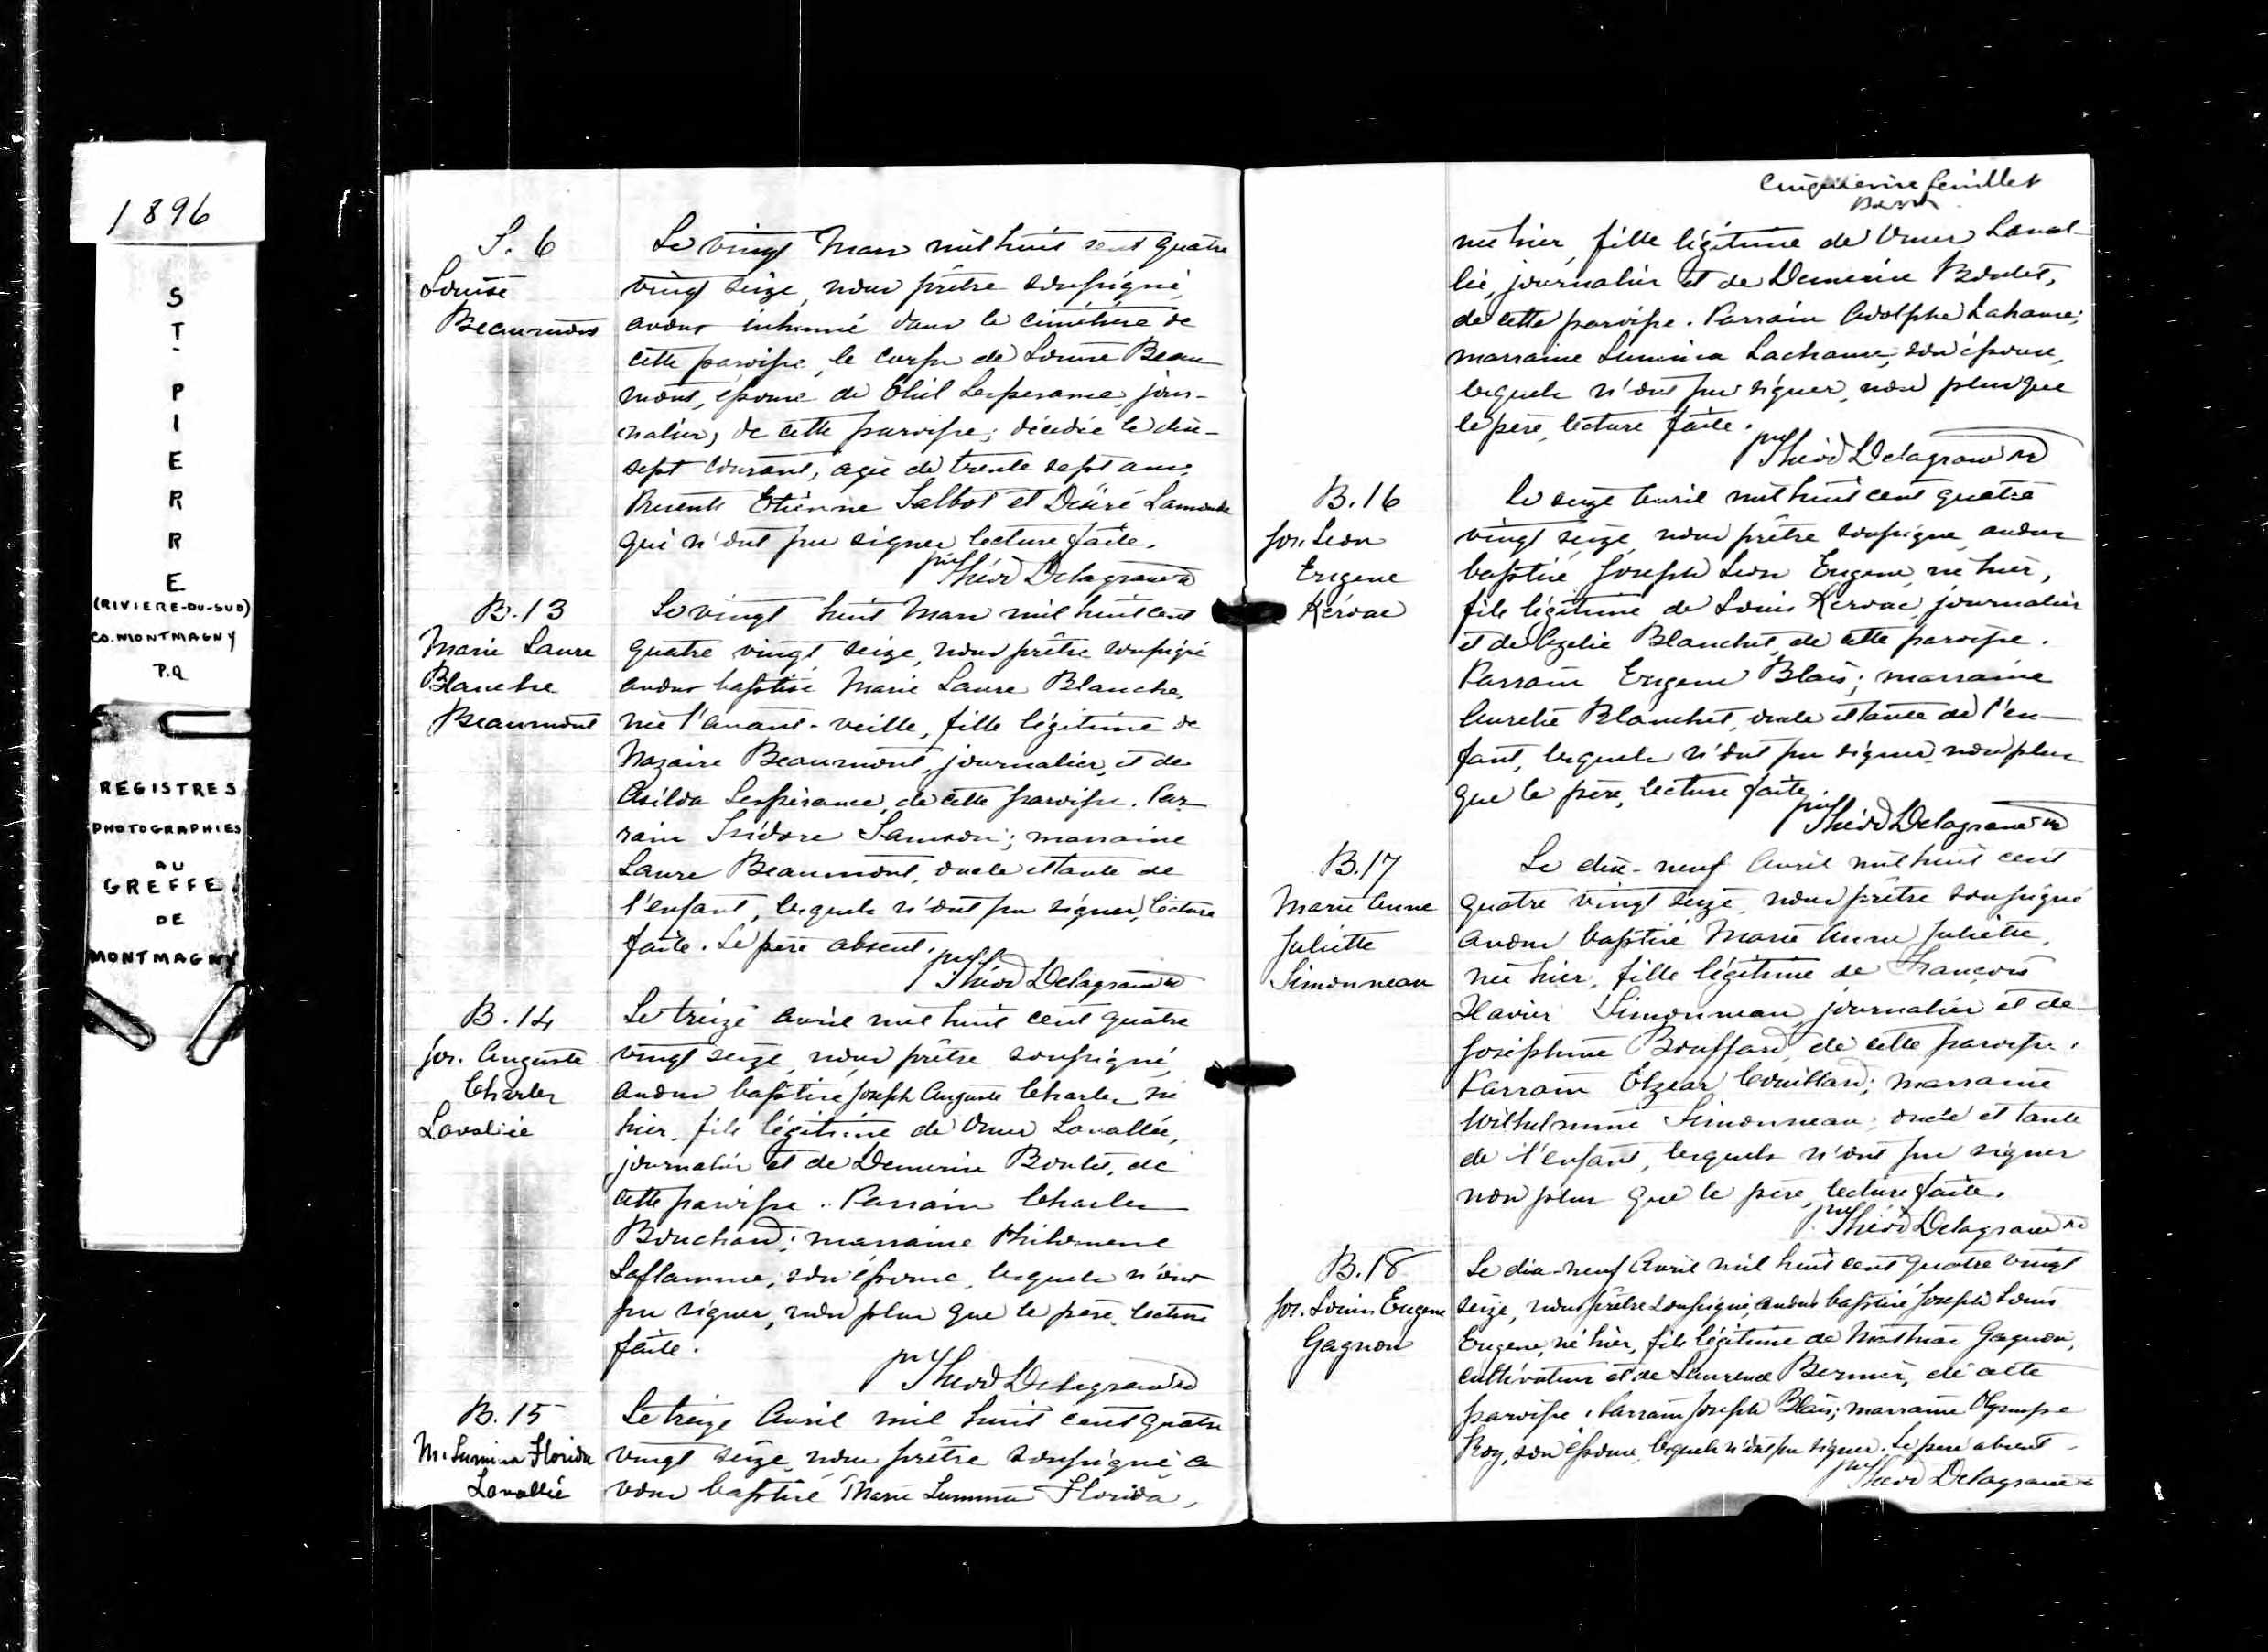 1896
ST-PIERRE
(RIVIERE-DU-SUD)
CO. MONTMAGNY
P.Q
REGISTRES
PHOTOGRAPHIES
AU
GREFFE
DE
MONTMAGNY
S. 6
Louise
Beaumont
Le vingt Mars mil huit cent quatre
vingt seize, nous prêtre soussigné,
avons inhumé dans le cimetière de
cette paroisse, le corps de Louise Beau
mont, épouse de Lesperance, jour-
nalier, de cette paroisse; décédée le dix-
sept courant, agée de trente sept ans.
Présents Etienne Talbot et Désiré Lamonde
qui n'ont pu signer lecture faite.
Théod Delagrave
B. 13
Marie Laure
Blanche
Beaumont
Le vingt huit Mars mil huit cent
quatre vingt seize, nous prêtre soussigné
avons baptisé Marie Laure Blanche,
née l'avant-veille, fille légitime de
Nazaire Beaumont, journalier, et de
Asilda Lespérance, de cette paroisse. Par
rain Isidore Samson; marraine
Laure Beaumont, oncle et tante de
l'enfant, lesquels n'ont pu signer, lecture
faite. Le père absent.
Théod Delagrave
B. 14
Jos. Auguste
Charles
Lavallée
Le treize avril mil huit cent quatre
vingt seize, nous prêtre soussigné,
avons baptisé Joseph Auguste Charles, né
hier, fils légitime de Omer Lavallée,
journalier et de Demerise Boulet, de
cette paroisse. Parrain Charles
Bouchard; marraine Philomene
Laflamme, son épouse, lesquels n'ont
pu signer, non plus que le père, lecture
faite.
Théod Delagrave
B. 15
M. Lumina Florida
Lavallée
Le treize Avril mil huit cent quatre
vingt seize, nous prêtre soussigné, a
vons baptisé Marie Lumina Florida,
feuillet
née hier, fille légitime de Omer Laval-
lée, journalier et de Demerise Boulet,
de cette paroisse. Parrain Adolphe Lachance;
marraine Lumina Lachance, son épouse,
lesquels n'ont pu signer, non plus que
le père, lecture faite.
Théod Delagrave
B. 16
Jos. Leon
Eugene
Kéroac
Le seize Avril mil huit cent quatre
vingt seize, nous prêtre soussigné, avons
baptisé Joseph Leon Eugene, né hier,
fils légitime de Louis Kéroac, journalier
et de Blanchet, de cette paroisse.
Parrain Eugene Blais; marraine
Aurelie Blanchet, oncle et tante de l'en-
fant, lesquels n'ont pu signer, non plus
que le père, lecture faite.
Théod Delagrave
B. 17
Marie Anne
Juliette
Simonneau
Le dix-neuf Avril mil huit cent
quatre vingt seize, nous prêtre soussigné
avons baptisé Marie Anne Juliette,
née hier, fille légitime de François
Xavier Simonneau, journalier et de
Josephine Bouffard, de cette paroisse.
Parrain Elzear Couillard; marraine
Wilhelmine Simonneau, oncle et tante
de l'enfant, lesquels n'ont pu signer
non plus que le père, lecture faite.
Théod Delagrave
B. 18
Jos. Louis Eugene
Gagnon
Le dix-neuf Avril mil huit cent quatre vingt
seize, nous prêtre soussigné, avons baptisé Joseph Louis
Eugene, né hier, fils légitime de Gagnon,
cultivateur et de Laurence Bernier, de cette
paroisse. Parrain Joseph Blais; marraine Olympe
Roy, son épouse, lesquels n'ont pu signer. Le père absent.
Théod Delagrave